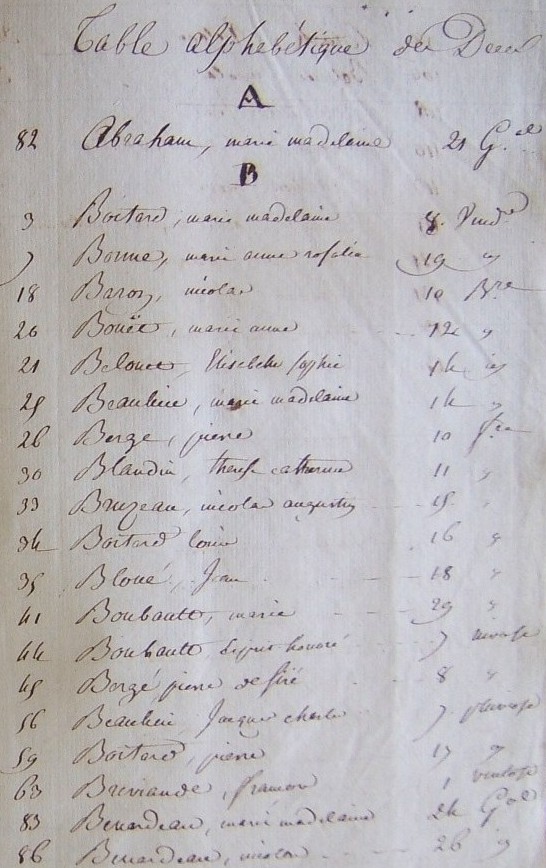 Table alphebétique des Deces
A
82 Abraham, marie madelaine 21 G.al
B
3 Boitard, marie madelaine 8. Vend.re
7 Bonne, marie anne rosalie 19 "
18 Baron, nicolas 10 B.re
20 Bouët, marie anne 12 "
21 Belouet, Elisabeth sophie 14 "
25 Beaulieu, marie madelaine 14 "
26 Bergé, pierre 10 f.re
30 Blandin, therese catherine 11 "
33 Bruzeau, nicolas augustin 15 "
34 Boitard louis 16 "
35 Bloué, Jean 18 "
41 Boubault, marie 29 "
44 Boubault, Esprit honoré 7 nivose
45 Bergé pierre desiré 8 "
56 Beaulieu Jacques charles 7 pluviose
59 Boitard, pierre 17 "
63 Breviande, 1 ventose
83 Benardeau, marie madelaine 24 G.al
86 Benardeau, nicolas 26 "